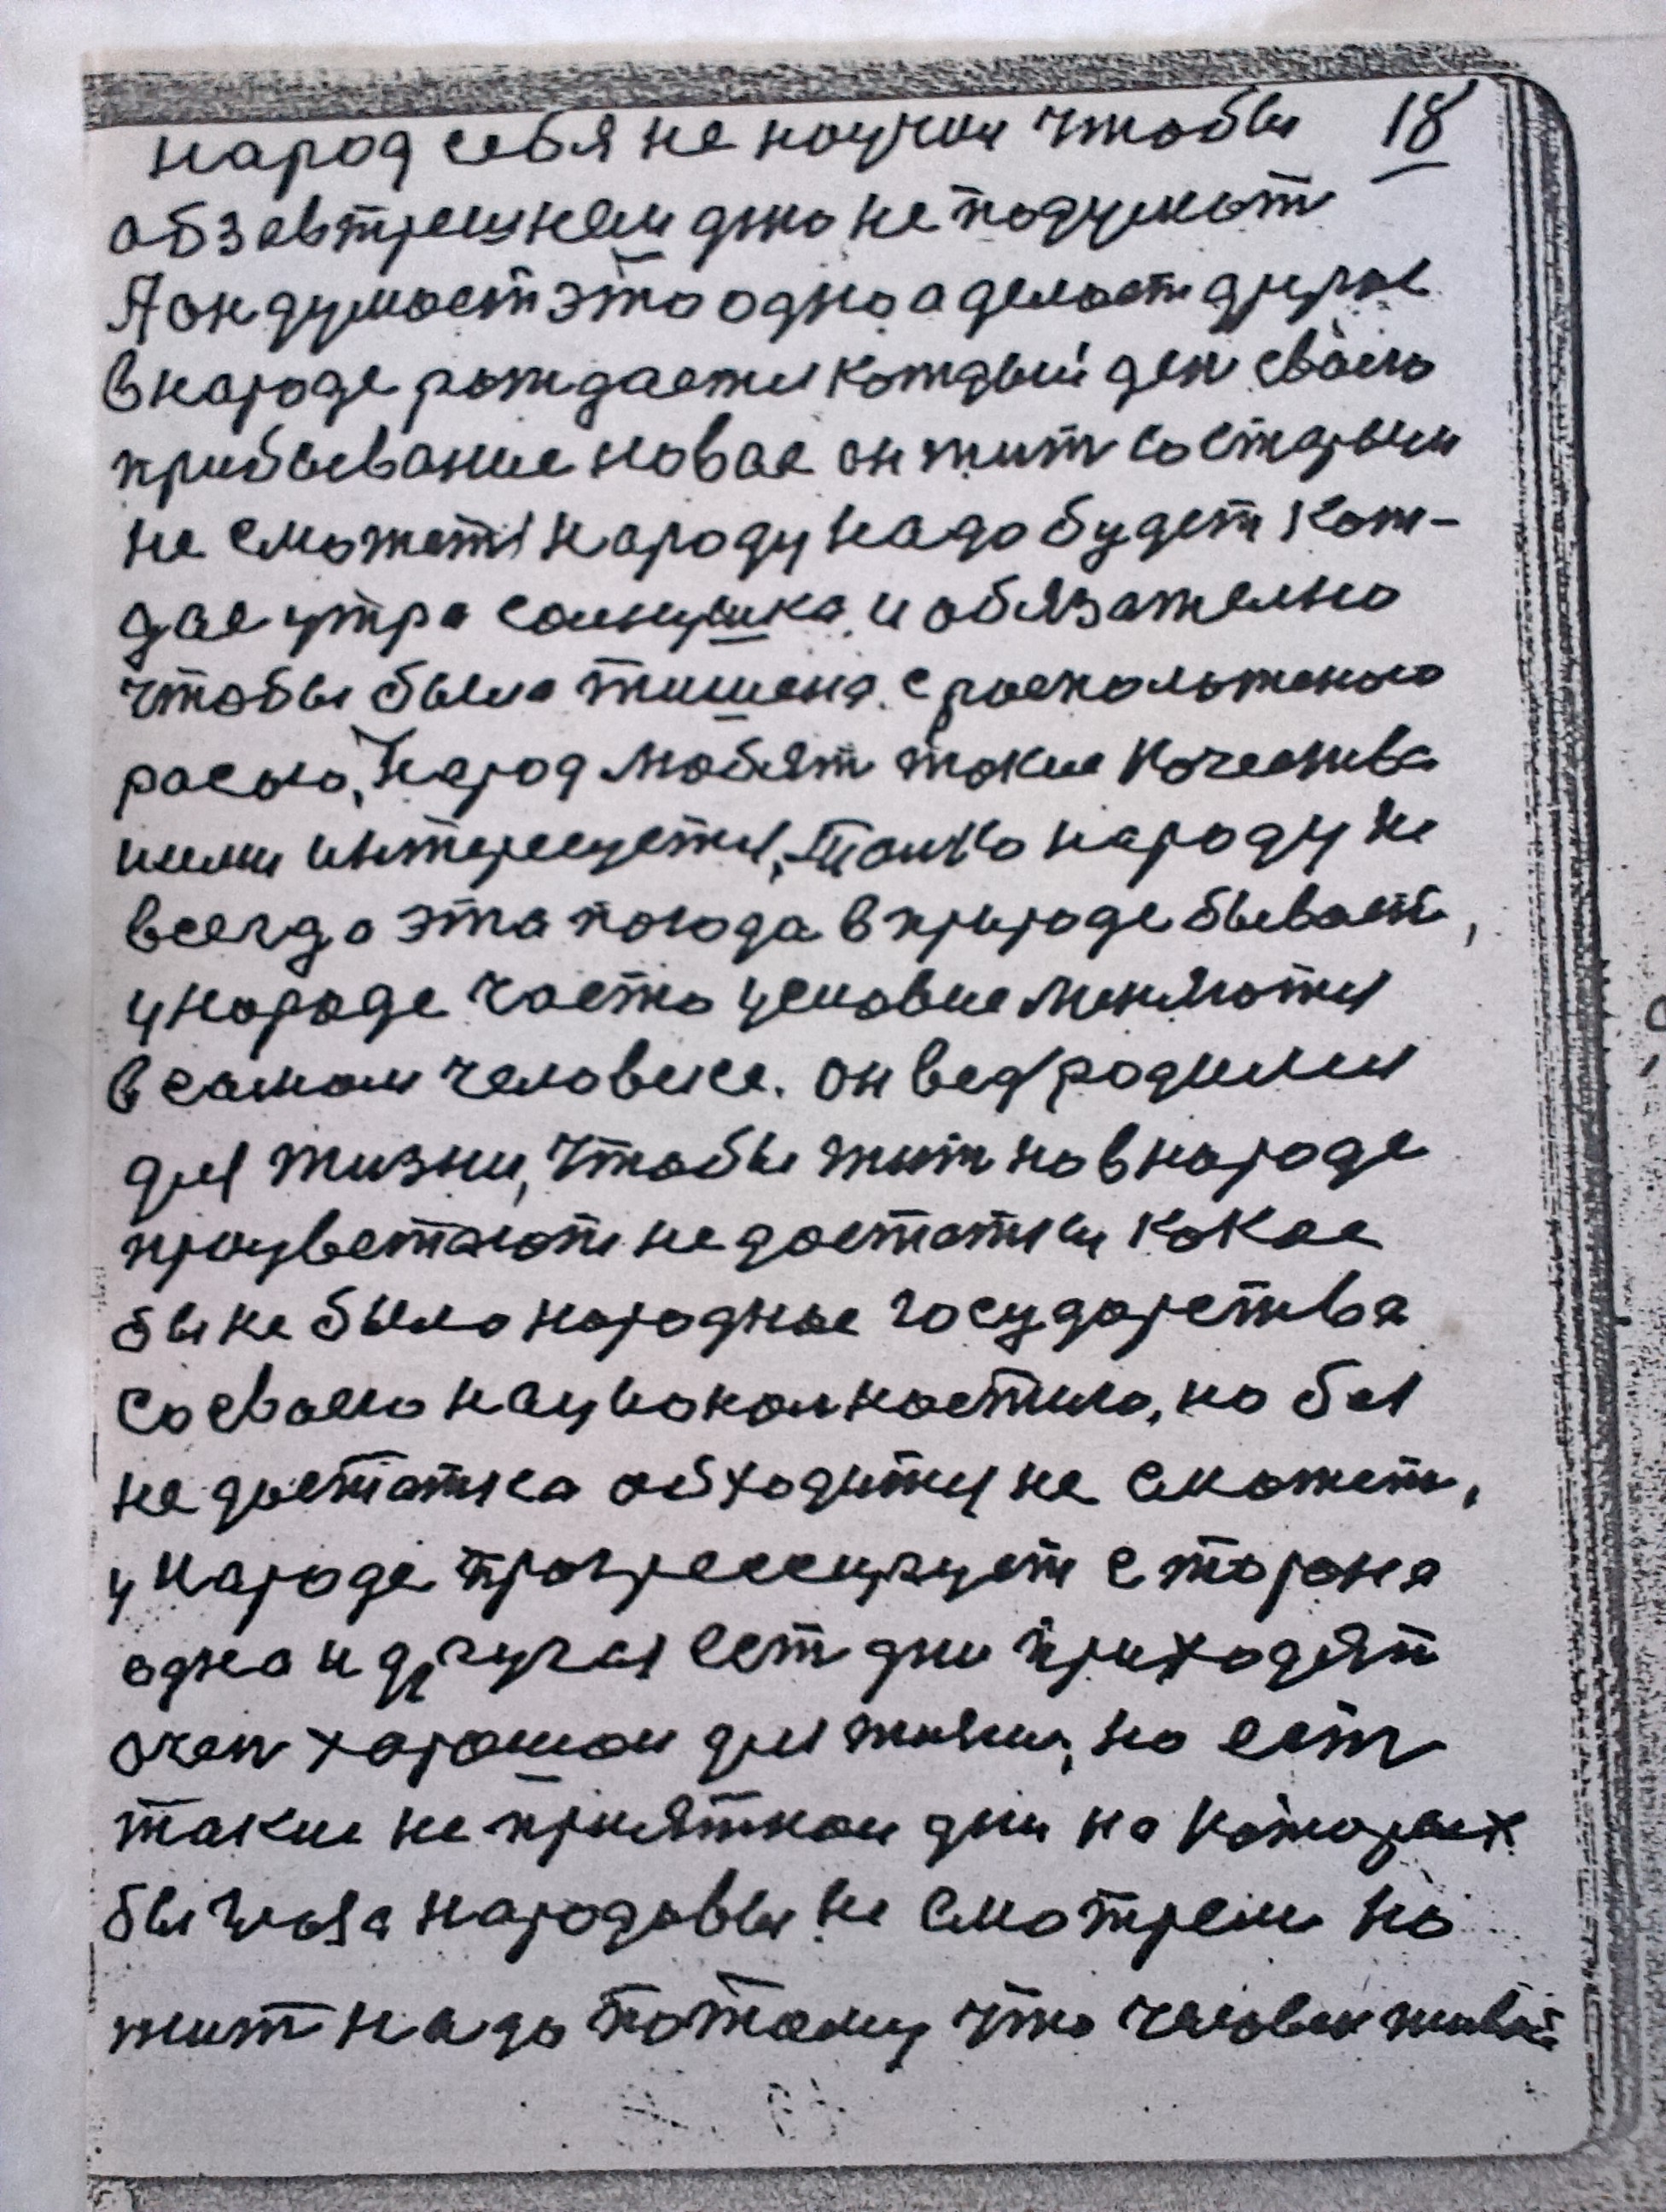 народ себя не научил чтобы 18
об завтрешнем дню не подумат
А он думает это одно а делает другое
в народе рождается каждый ден своею
прибывание новае он жит со старым
не сможет народу надо будет каж-
дае утра солнушка и обязателно
чтобы была тишена с расположеною
расою, народ любят такие качества
ими интересуется, толко народу не
всегда эта погода в природе бывает,
у народе часто условие меняются
в самом человеке. он вед родился
для жизни, чтобы жит но в народе
процветают недостатки какое
бы не было народное государства
со своею националностию, но без
недостатка обходится не сможет,
у народе прогрессирует сторона
одна и другая ест дни приходят
очен харошои для жизни, но ест
такие не приятнои дни на которых
бы глаза народавы не смотрели но
жит надо потому что человек живой